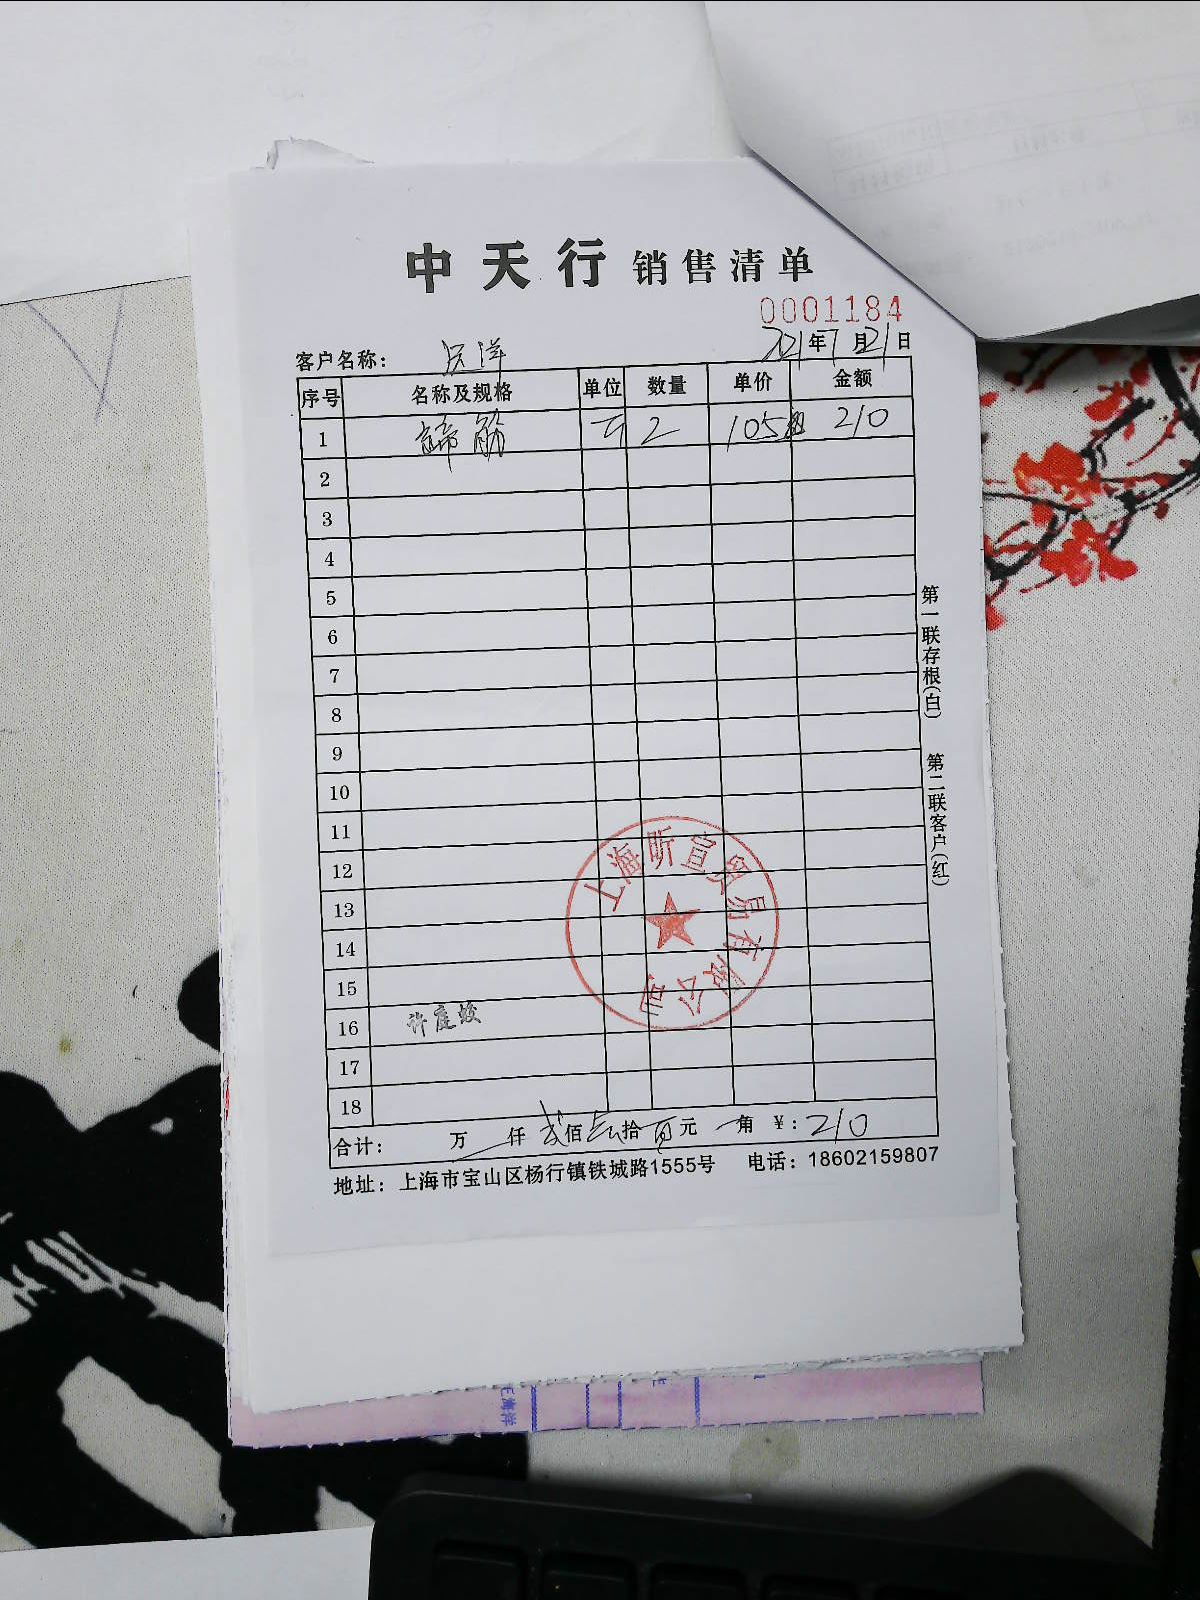 中天行 销售清单
0001184
客户名称： 远洋 2021年7月21日
序号 名称及规格 单位 数量 单价 金额
1 蹄筋 2 105 210
2
3
4
5
6
7
8
9
10
11
12
13
14
15
16 许庭蛟
17
18
合计： 万 仟 贰佰 拾 元 角 ¥：210
地址：上海市宝山区杨行镇铁城路1555号 电话：18602159807
第一联存根(白) 第二联客户(红)
上海昕宣贸易有限公司